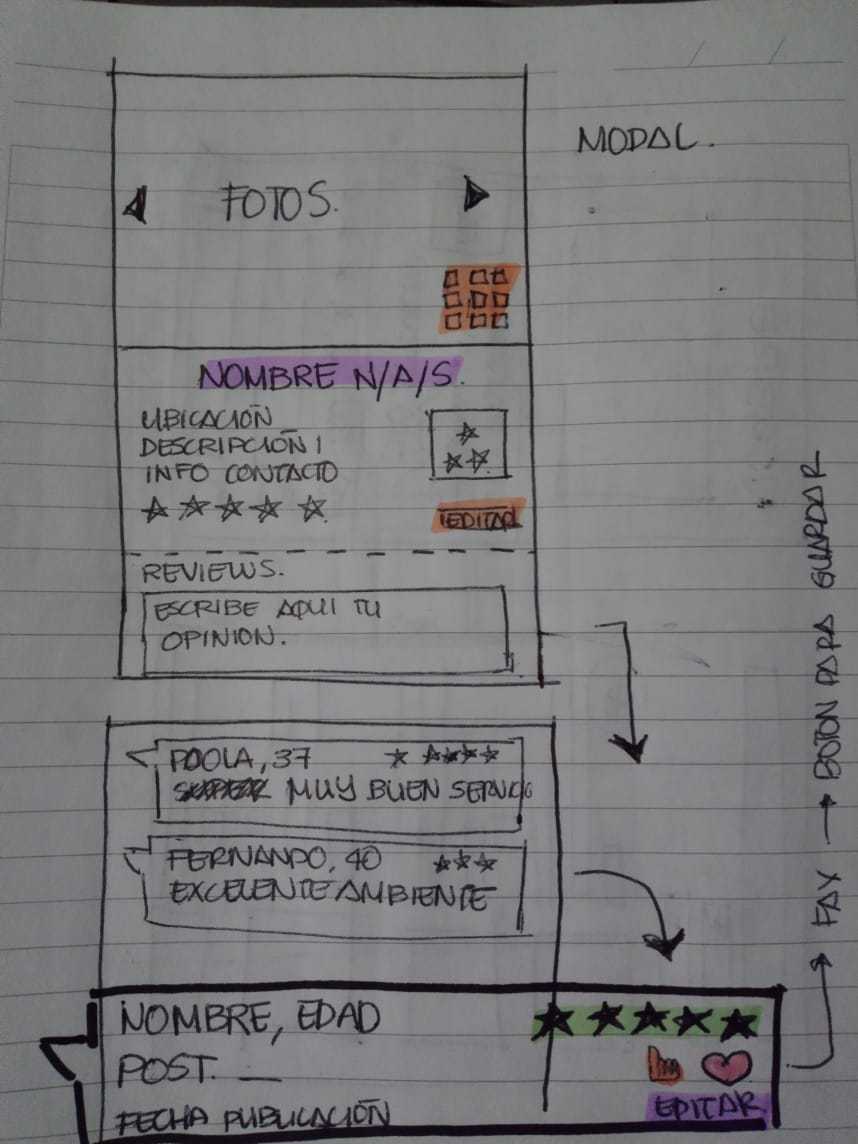 MODAL.
FOTOS.
NOMBRE N/A/S.
UBICACIÓN
DESCRIPCIÓN
INFO CONTACTO
EDITAR
REVIEWS.
ESCRIBE AQUI TU
OPINION.
PAOLA, 37
SUPER MUY BUEN SERVICIO
FERNANDO, 40
EXCELENTE AMBIENTE
NOMBRE, EDAD
POST.
EDITAR
FECHA PUBLICACIÓN
FAV → BOTON PARA GUARDAR